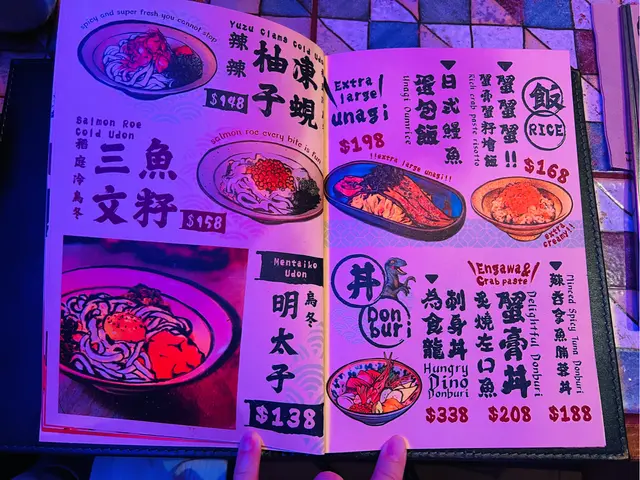 spicy and super fresh you cannot stop
Yuzu Clams Cold Udon
辣辣
柚子
凍蜆
$148
Salmon Roe
Cold Udon
稻庭冷烏冬
三文
魚籽
salmon roe every bite is fun
$158
Mentaiko
Udon
明太子
烏冬
$138
Extra
large
unagi
$198
日式鰻魚
蛋包飯
Unagi Oumrice
!!extra large unagi!!
飯
RICE
蟹蟹蟹!!
蟹膏蟹籽燴飯
Rich crab paste risotto
$168
extra
creamy!!
丼
Don
buri
為食龍
刺身丼
Hungry
Dino
Donburi
$338
Engawa&
Crab paste
蟹膏丼
炙燒左口魚
Delightful Donburi
$208
辣吞拿魚腩蓉丼
Minced Spicy Tuna Donburi
$188